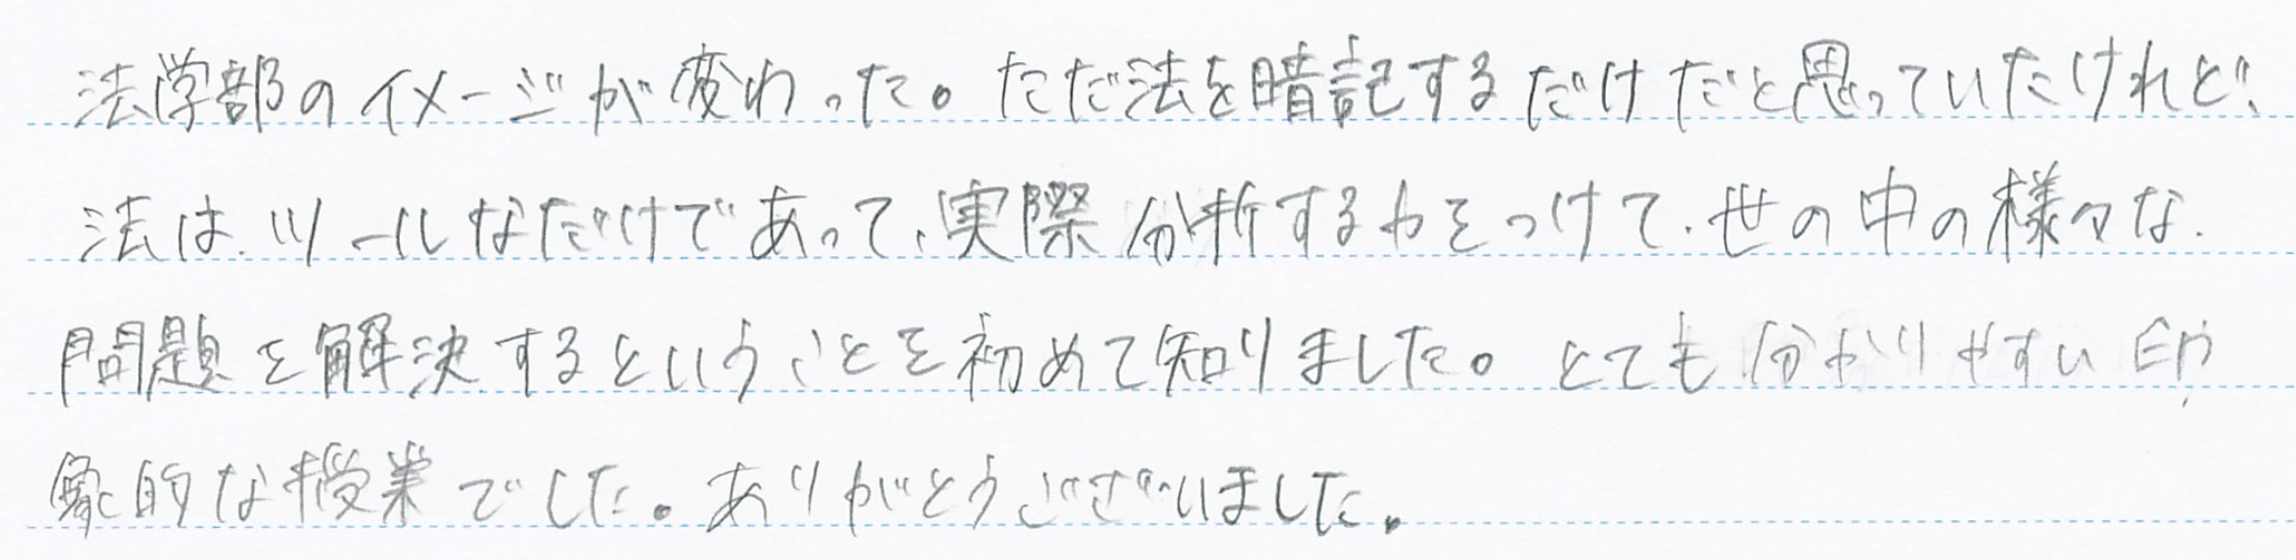 法学部のイメージが変わった。ただ法を暗記するだけだと思っていたけれど、
法は、ツールなだけであって、実際分析する力をつけて、世の中の様々な
問題を解決するということを初めて知りました。とても分かりやすい印
象的な授業でした。ありがとうございました。